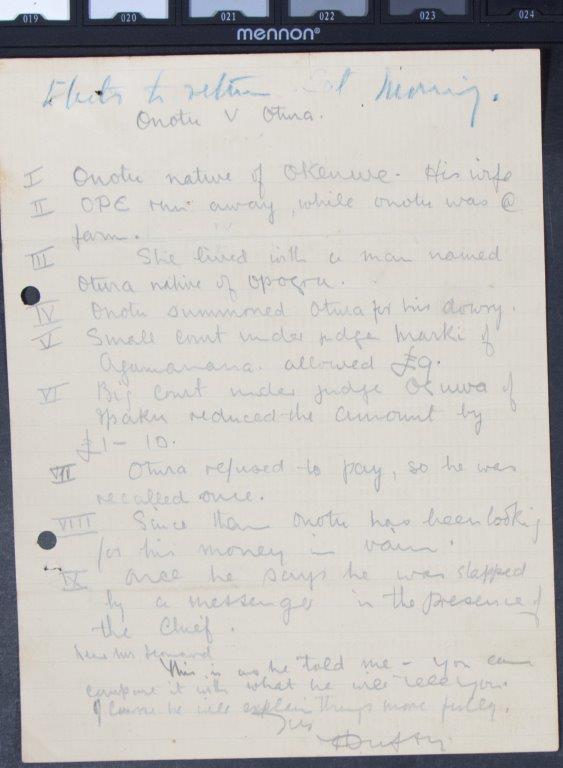 019 020 021 022 023 024
mennon®
Elects to return Sat Morning.
Onotu V Otura.
I Onotu native of Okenwe. His wife
II OPE run away, while onotu was @
farm.
III She lived with a man named
Otura native of Opogoru.
IV Onotu summoned Otura for his dowry.
V Small court under judge Marki of
Agamanana. allowed £9.
VI Big Court under judge Osuwa of
Ipaku reduced the amount by
£1-10.
VII Otura refused to pay, so he was
recalled once.
VIII Since then onotu has been looking
for his money in vain.
IX once he says he was slapped
by a messenger in the presence of
the Chief.
Dear Mr
This is as he told me - you can
compare it with what he will tell you.
Of course he will explain things more fully.